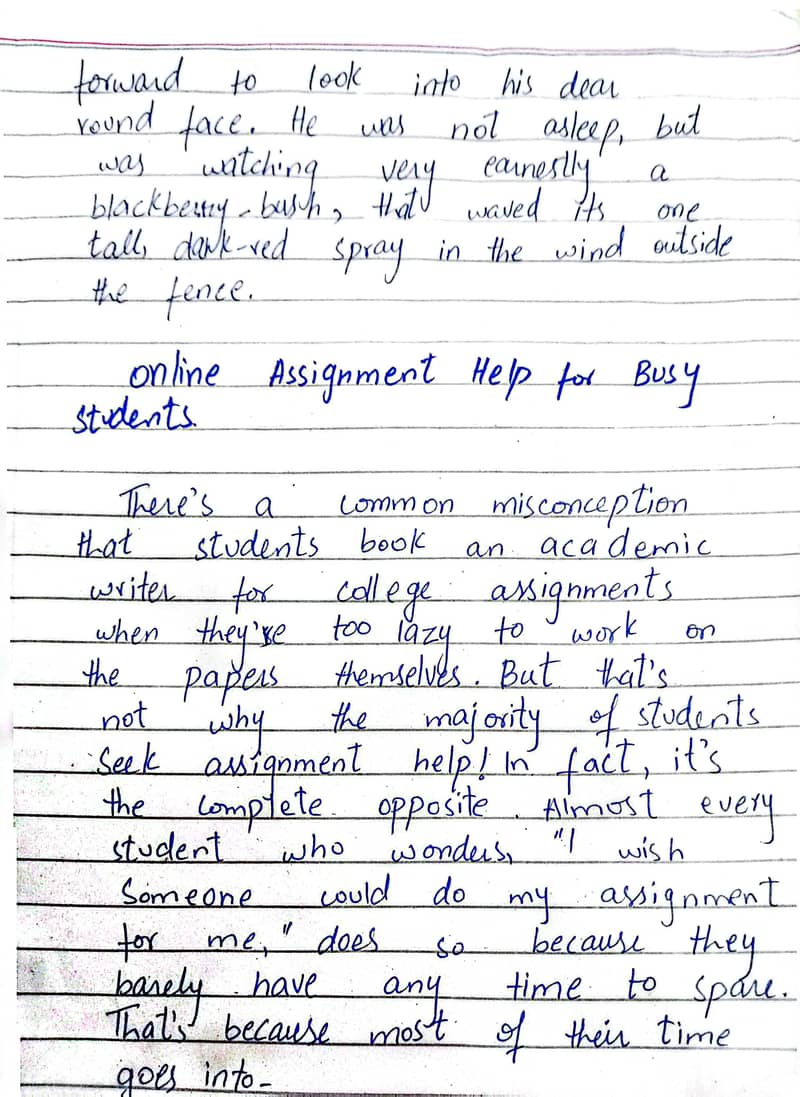 forward to look into his dear
round face. He was not asleep, but
was watching very earnestly a
blackberry-bush, that waved its one
tall, dark-red spray in the wind outside
the fence.
Online Assignment Help for Busy
students.
There's a common misconception
that students book an academic
writer for college assignments
when they're too lazy to work on
the papers themselves. But that's
not why the majority of students
seek assignment help! In fact, it's
the complete opposite. Almost every
student who wonders, "I wish
someone could do my assignment
for me," does so because they
barely have any time to spare.
That's because most of their time
goes into-